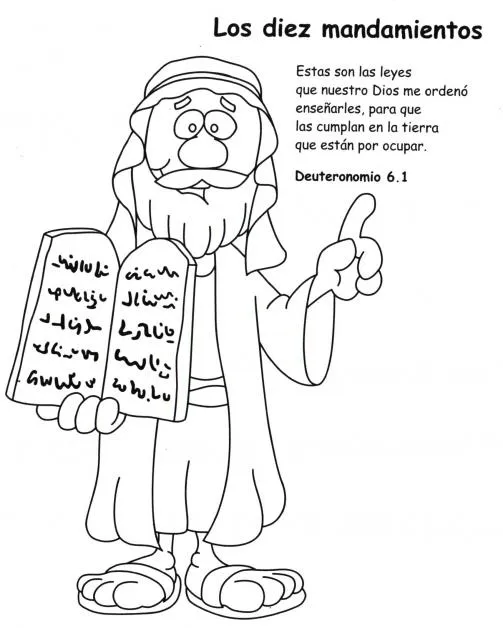 Los diez mandamientos
Estas son las leyes
que nuestro Dios me ordenó
enseñarles, para que
las cumplan en la tierra
que están por ocupar.
Deuteronomio 6.1